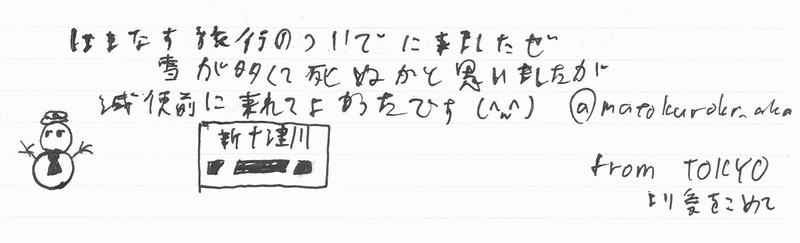 はまなす旅行のついでに来ましたぜ
雪が多くて死ぬかと思いましたが
減便前に来れてよかったです (^ω^) @matokurokr_aka
新十津川
from TOKYO
より愛をこめて